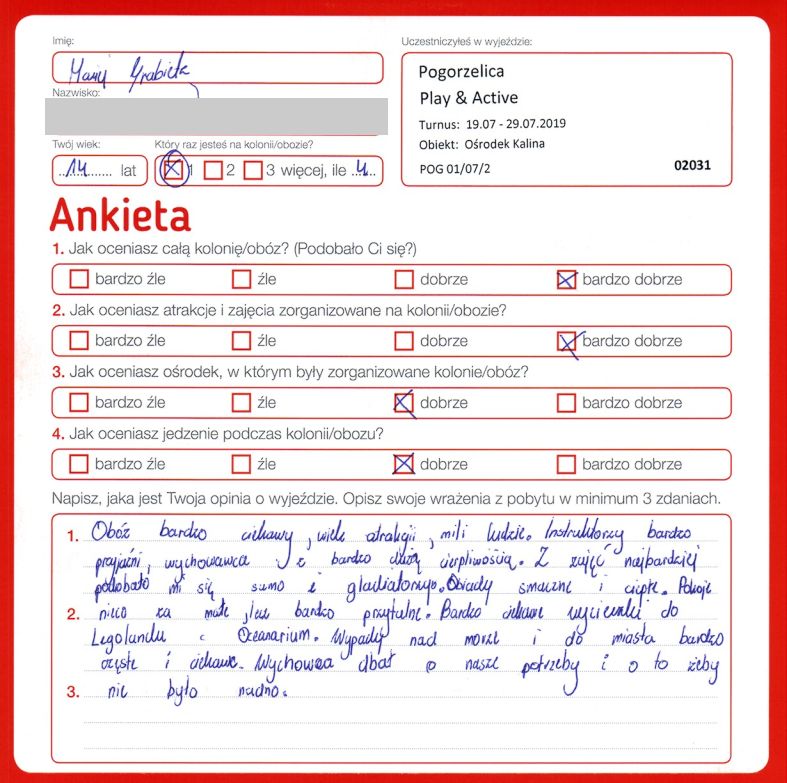 Imię:
Uczestniczyłeś w wyjeździe:
Nazwisko:
Pogorzelica
Play & Active
Turnus: 19.07 - 29.07.2019
Obiekt: Ośrodek Kalina
POG 01/07/2 02031
Twój wiek: Który raz jesteś na kolonii/obozie?
14 lat 1 2 3 więcej, ile 4
Ankieta
1. Jak oceniasz całą kolonię/obóz? (Podobało Ci się?)
bardzo źle źle dobrze bardzo dobrze
2. Jak oceniasz atrakcje i zajęcia zorganizowane na kolonii/obozie?
bardzo źle źle dobrze bardzo dobrze
3. Jak oceniasz ośrodek, w którym były zorganizowane kolonie/obóz?
bardzo źle źle dobrze bardzo dobrze
4. Jak oceniasz jedzenie podczas kolonii/obozu?
bardzo źle źle dobrze bardzo dobrze
Napisz, jaka jest Twoja opinia o wyjeździe. Opisz swoje wrażenia z pobytu w minimum 3 zdaniach.
1. Obóz bardzo ciekawy, wiele atrakcji, mili ludzie. Instruktorzy bardzo
przyjaźni, wychowawca z bardzo dużą cierpliwością. Z zajęć najbardziej
podobało mi się sumo i gladiatorzy. Obiady smaczne i ciepłe. Pokoje
2. nieco za małe, lecz bardzo przytulne. Bardzo ciekawe wycieczki do
Legolandu i Oceanarium. Wypady nad morze i do miasta bardzo
częste i ciekawe. Wychowca dbał o nasze potrzeby i o to żeby
3. nie było nudno.